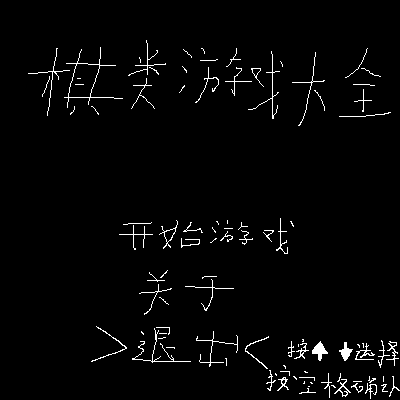 棋类游戏大全
开始游戏
关于
>退出<
按↑ ↓选择
按空格确认